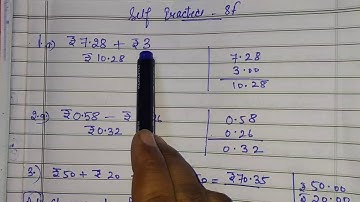 Self Practice - 8f
1.a) ₹7.28 + ₹3
₹10.28
7.28
3.00
10.28
2.a) ₹0.58 - ₹
₹0.32
0.58
0.26
0.32
3.) ₹50 + ₹20 0 = ₹70.35
₹50.00
₹20.00